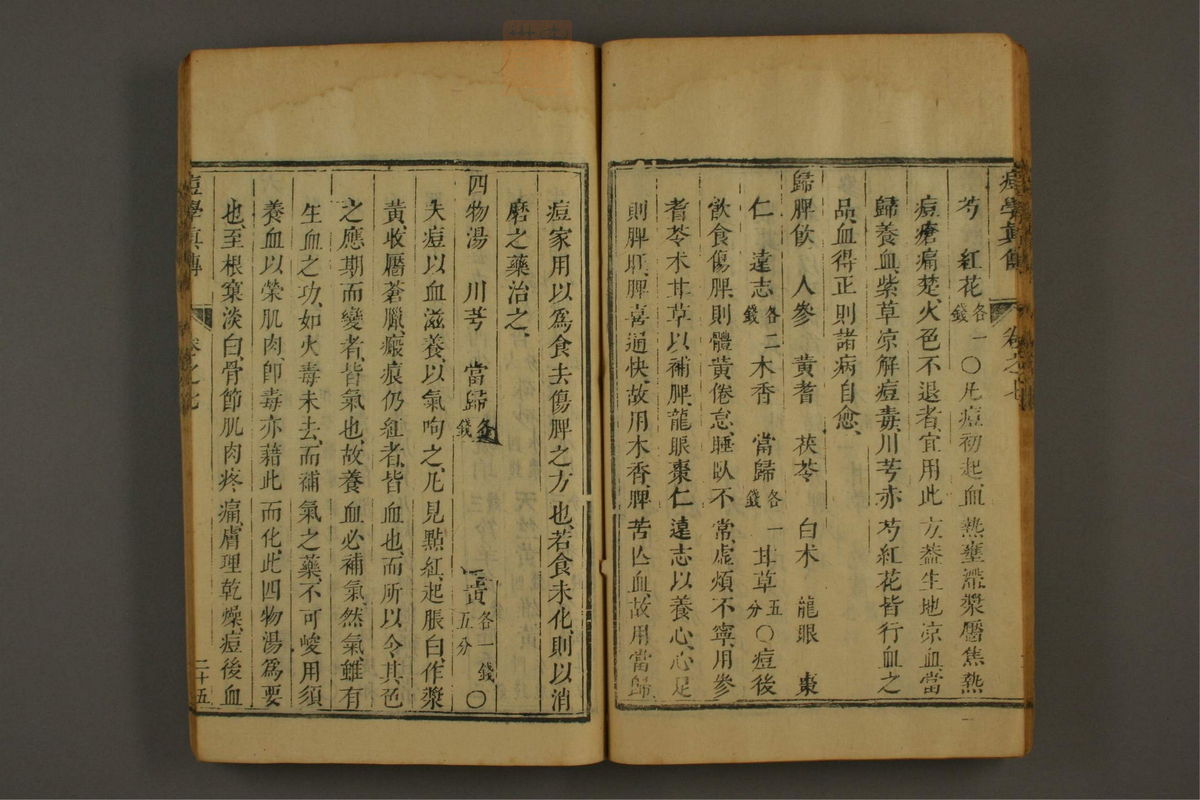 痘學真傳　卷之七
芍　紅花各一錢○凡痘初起血熱壅滯漿靨焦熱
痘瘡痛楚火色不退者宜用此方蓋生地涼血當
歸養血紫草涼解痘毒川芎赤芍紅花皆行血之
品血得正則諸病自愈
歸脾飲　人參　黃耆　茯苓　白朮　龍眼　棗
仁　遠志各二錢　木香　當歸各一錢　甘草五分○痘後
飲食傷脾則體黃倦怠睡臥不常虛煩不寧用參
耆苓朮甘草以補脾龍眼棗仁遠志以養心心足
則脾旺脾喜通快故用木香脾苦亡血故用當歸
痘家用以為食去傷脾之方也若食未化則以消
磨之藥治之
四物湯　川芎　當歸各　錢　黃各一錢五分○
夫痘以血滋養以氣呴之凡見點紅起脹白作漿
黃收靨蒼臘瘢痕仍紅者皆血也而所以令其色
之應期而變者皆氣也故養血必補氣然氣雖有
生血之功如火毒未去而補氣之藥不可峻用須
養血以榮肌肉卽毒亦藉此而化此四物湯為要
也至根窠淡白骨節肌肉疼痛膚理乾燥痘後血
痘學真傳　卷之七　二十五